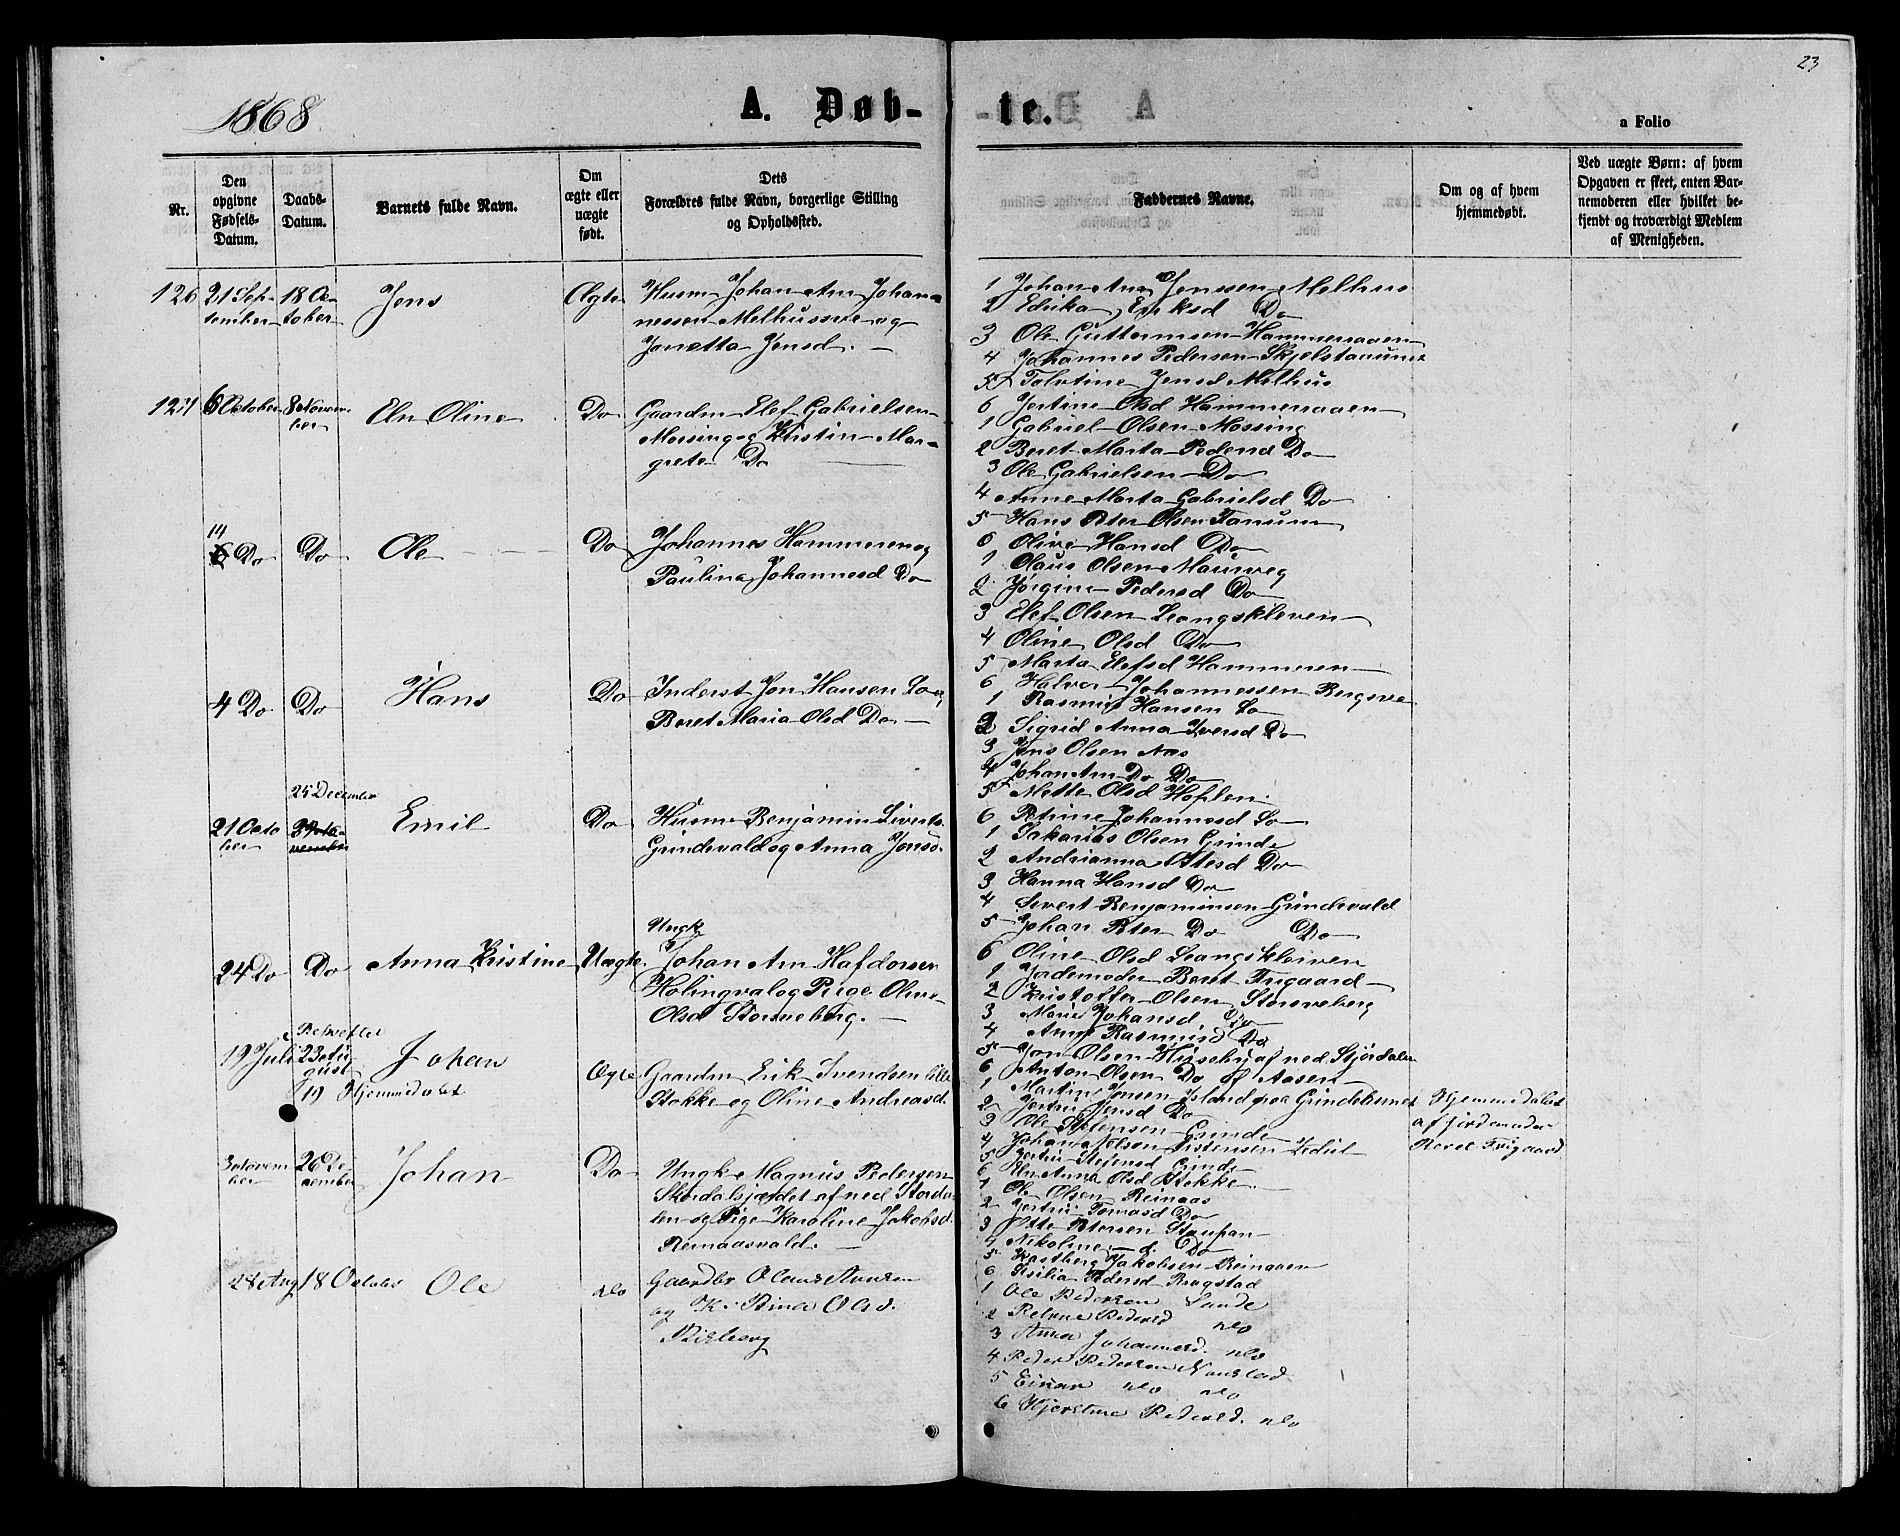 23
1868
A. Døb-
te.
a Folio
Nr.
Den
opgivne
Fødsels-
Datum.
Daabs-
Datum.
Barnets fulde Navn.
Om
ægte eller
uægte
født.
Dets
Forældres fulde Navn, borgerlige Stilling
og Opholdssted.
Faddernes Navne.
Om og af hvem
hjemmedøbt.
Ved uægte Børn: af hvem
Opgaven er skeet, enten Bar-
nemoderen eller hvilket be-
kjendt og troværdigt Medlem
af Menigheden.
126 21 Sep- 18 Oc- Jens Ægte Husm Johan Arn Johan-
tember tober nessen Melhussve og
Jonetta Jensd.
1 Johan Arn Jenssen Melhus
2 Edvika Eriksd Do
3 Ole Guttormsen Hammersaaen
4 Johannes Pedersen Skjelstadunet
5 Tolvtine Jensd Melhus
6 Jertine Olsd Hammersaaen
127 6 October 8 Novem- Eln Oline Do Gaardm Elef Gabrielsen
ber Mossing og Kirstin Mar-
grete Do
1 Gabriel Olsen Mossing
2 Beret Marta Pedersd Do
3 Ole Gabrielsen Do
4 Anne Marta Gabrielsd Do
5 Hans Peter Olsen Tanum
6 Olive Hansd Do
14
Do Do Ole Do Johannes Hammeren og
Paulina Johannesd Do
1 Olaus Olsen Maurveg
2 Jørgine Pedersd Do
3 Elef Olsen Leangskleven
4 Oline Olsd Do
5 Marta Elefsd Hammeren
6 Halvor Johannessen Bergsve
4 Do Do Hans Do Inderst Jon Hansen Lo og
Beret Maria Olsd Do
1 Rasmus Hansen Lo
2 Sigrid Anna Iversd Do
3 Jens Olsen Aas
4 Johan Arn Do Do
5 Mette Olsd Hoplen
6 Petrine Johannesd Lo
25 December
21 Octo Emil Do Husm Benjamin Siverts
ber Grindevald og Anna Jonsd.
1 Sakarias Olsen Grinde
2 Andrianna Atlesd Do
3 Hanna Hansd Do
4 Sivert Benjaminsen Grindevald
5 Johan Peter Do Do
6 Oline Olsd Leangskleven
Ungk
24 Do Do Anna Kristine Uægte Johan Arn Hafdorsen
Holingval og Pige Oline
Olsd Storveberg.
1 Jordemoder Beret Trygaard
2 Kristoffer Olsen Storveberg
3 Marie Johansd Do
4 Anne Rasmusd Do
5 Jon Olsen Husebÿ af ned. Stjørdalen
6 Anton Olsen Do af Aasen
19 Juli 23 Au- Johan Ægte Gaardm Erik Svendsen lille
gust Stokke og Oline Andreasd.
19 Hjemmedøbt
1 Martin Jensen Island paa Grindehernet
2 Jertru Jensd Do
3 Ole Stefensen Grinde
4 Johan
5 Jertru Stefensd Grinde
6 Eln Anna Olsd Stokke
Hjemmedøbt
af jordemoder
Beret Trygaard
3 Novem 26 De- Johan Do Ungk Magnus Pedersen
ber cember Skordalsjærdet af ned Stjorda-
len og Pige Karoline Jakobsd.
Reinaasvald.
1 Ole Olsen Reinaas
2 Jertru Tomasd Do
3 Otte Petersen Staupan
4 Nikoline d. Do
5 Kastberg Jakobsen Reinaaen
6 Sisilia Pedersd Rugstad
28 Aug 18 October Ole do Gaardbr Olaus Aunsen
og K. Bina Olsd.
1 Ole Pedersen Sande
2 Petrue Pedersd do
3 Anna Johannesd. do
4 Peder Pedersen Naustad
5 Einar do do
6 Kjerstine Pedersd. do